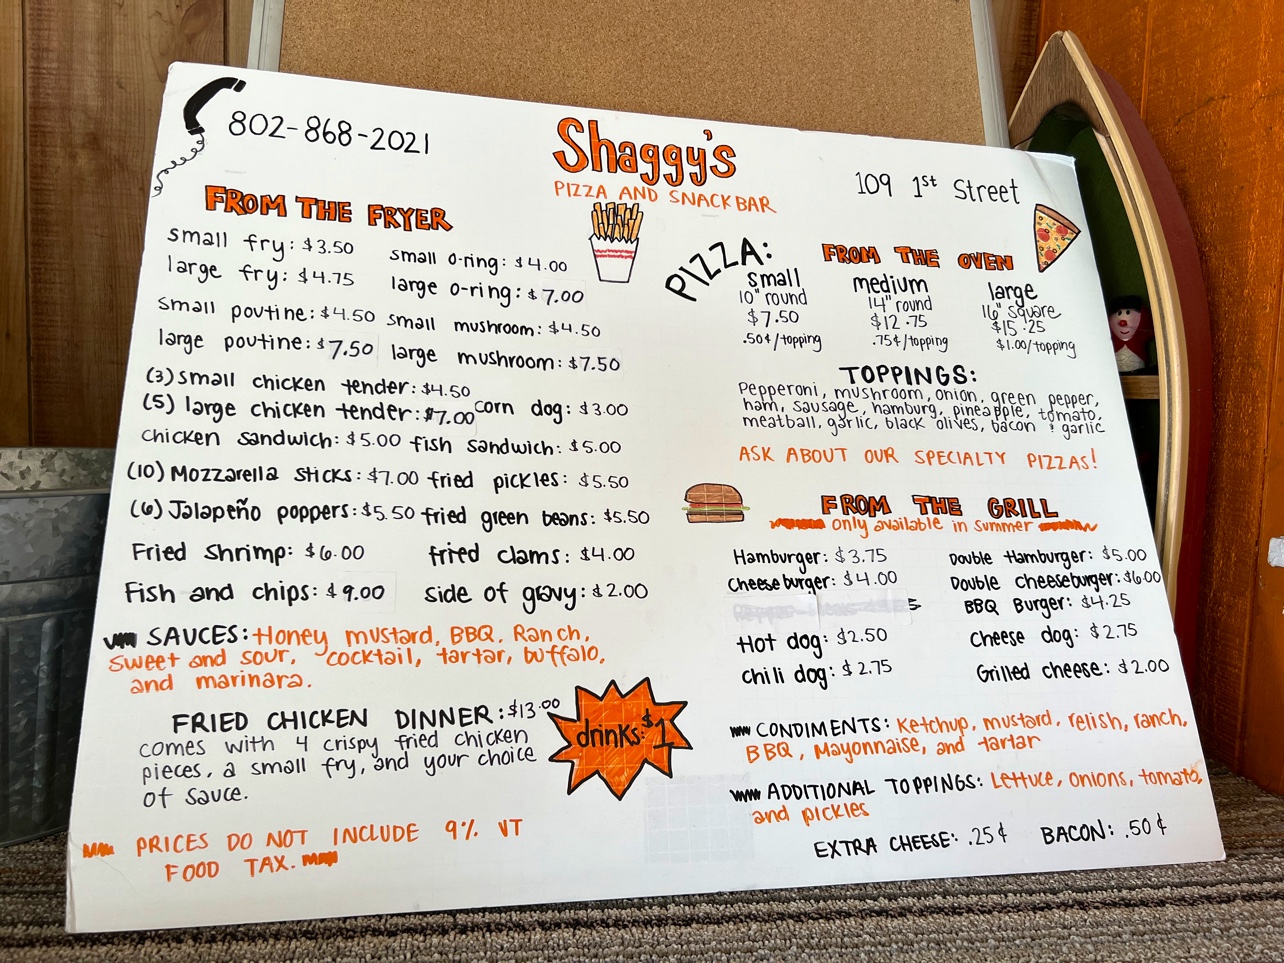 802-868-2021
Shaggy's
PIZZA AND SNACKBAR
109 1st Street
FROM THE FRYER
small fry: $3.50
small o-ring: $4.00
large fry: $4.75
large o-ring: $7.00
small poutine: $4.50
small mushroom: $4.50
large poutine: $7.50
large mushroom: $7.50
(3) small chicken tender: $4.50
(5) large chicken tender: $7.00
corn dog: $3.00
chicken sandwich: $5.00
fish sandwich: $5.00
(10) Mozzarella sticks: $7.00
fried pickles: $5.50
(6) Jalapeño poppers: $5.50
fried green beans: $5.50
Fried Shrimp: $6.00
fried clams: $4.00
Fish and chips: $9.00
side of gravy: $2.00
SAUCES: Honey mustard, BBQ, Ranch,
sweet and sour, cocktail, tartar, buffalo,
and marinara.
FRIED CHICKEN DINNER: $13.00
comes with 4 crispy fried chicken
pieces, a small fry, and your choice
of sauce.
drinks: $1
PRICES DO NOT INCLUDE 9% VT
FOOD TAX.
PIZZA:
FROM THE OVEN
small
10" round
$7.50
.50¢/topping
medium
14" round
$12.75
.75¢/topping
large
16" square
$15.25
$1.00/topping
TOPPINGS:
Pepperoni, mushroom, onion, green pepper,
ham, sausage, hamburg, pineapple, tomato,
meatball, garlic, black olives, bacon & garlic
ASK ABOUT OUR SPECIALTY PIZZAS!
FROM THE GRILL
only available in summer
Hamburger: $3.75
Double Hamburger: $5.00
Cheeseburger: $4.00
Double cheeseburger: $6.00
BBQ Burger: $4.25
Hot dog: $2.50
Cheese dog: $2.75
Chili dog: $2.75
Grilled cheese: $2.00
CONDIMENTS: Ketchup, mustard, relish, ranch,
BBQ, Mayonnaise, and tartar
ADDITIONAL TOPPINGS: Lettuce, onions, tomato,
and pickles
EXTRA CHEESE: .25¢
BACON: .50¢